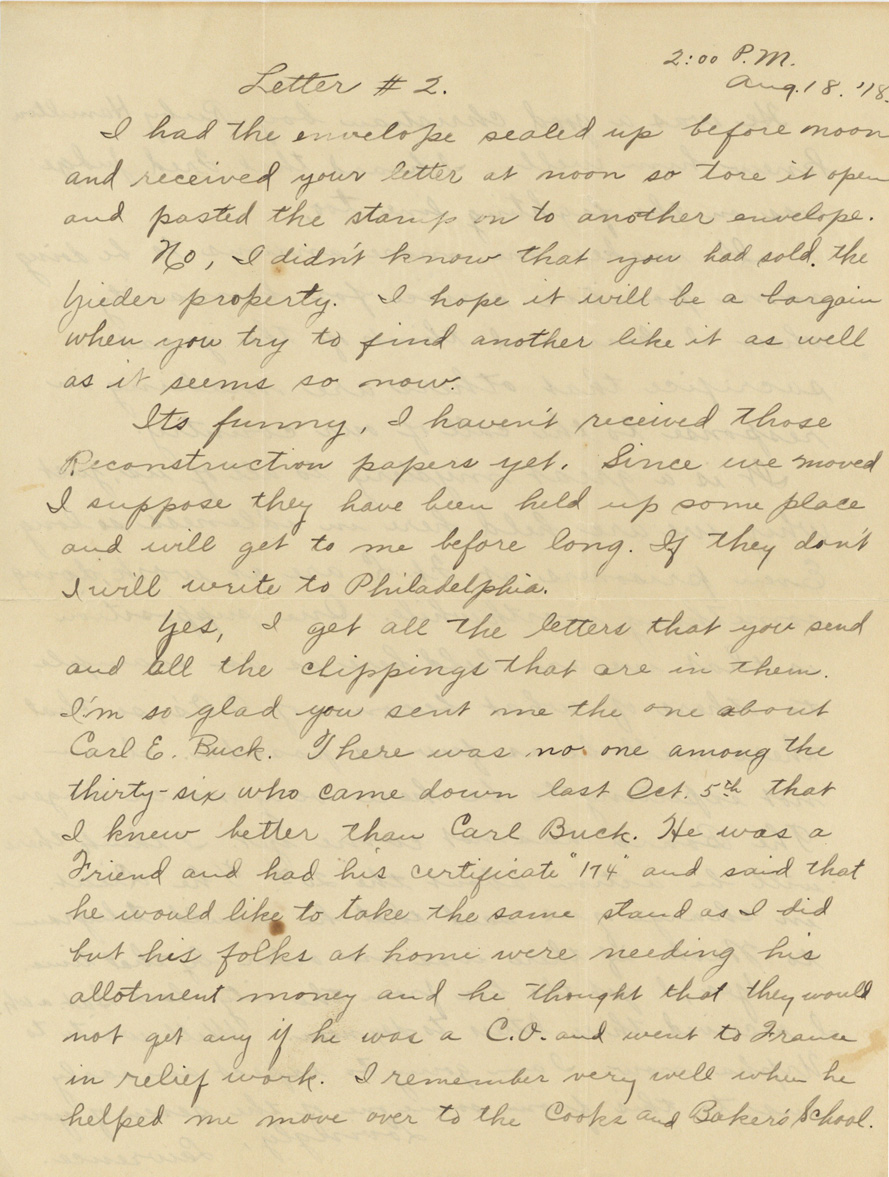 2:00 P.M.
Letter # 2. Aug. 18. '18.
I had the envelope sealed up before noon
and received your letter at noon so tore it open
and pasted the stamp on to another envelope.
No, I didn't know that you had sold the
Yieder property. I hope it will be a bargain
when you try to find another like it as well
as it seems so now.
Its funny, I haven't received those
Reconstruction papers yet. Since we moved
I suppose they have been held up some place
and will get to me before long. If they don't
I will write to Philadelphia.
Yes, I get all the letters that you send
and all the clippings that are in them.
I'm so glad you sent me the one about
Carl E. Buck. There was no one among the
thirty-six who came down last Oct. 5th that
I knew better than Carl Buck. He was a
Friend and had his certificate "174" and said that
he would like to take the same stand as I did
but his folks at home were needing his
allotment money and he thought that they would
not get any if he was a C.O. and went to France
in relief work. I remember very well when he
helped me move over to the Cooks and Baker's School.